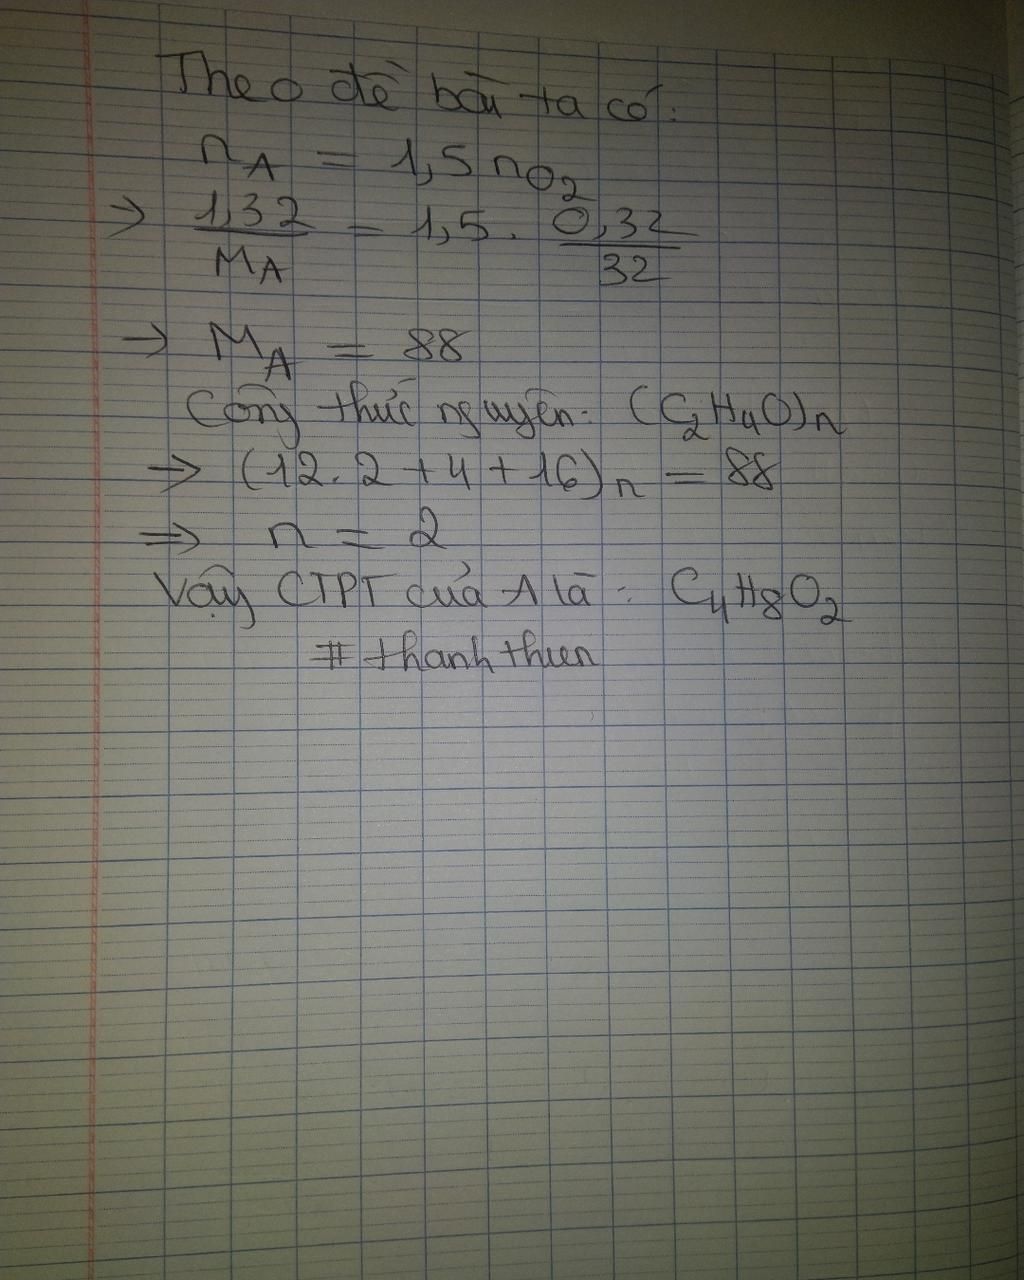 Theo đề bài ta có:
nA = 1,5 nO2
→ 1,32/MA = 1,5. 0,32/32
→ MA = 88
Công thức nguyên: (C2H4O)n
⇒ (12.2+4+16)n = 88
⇒ n = 2
Vậy CTPT của A là: C4H8O2
# thanhthien